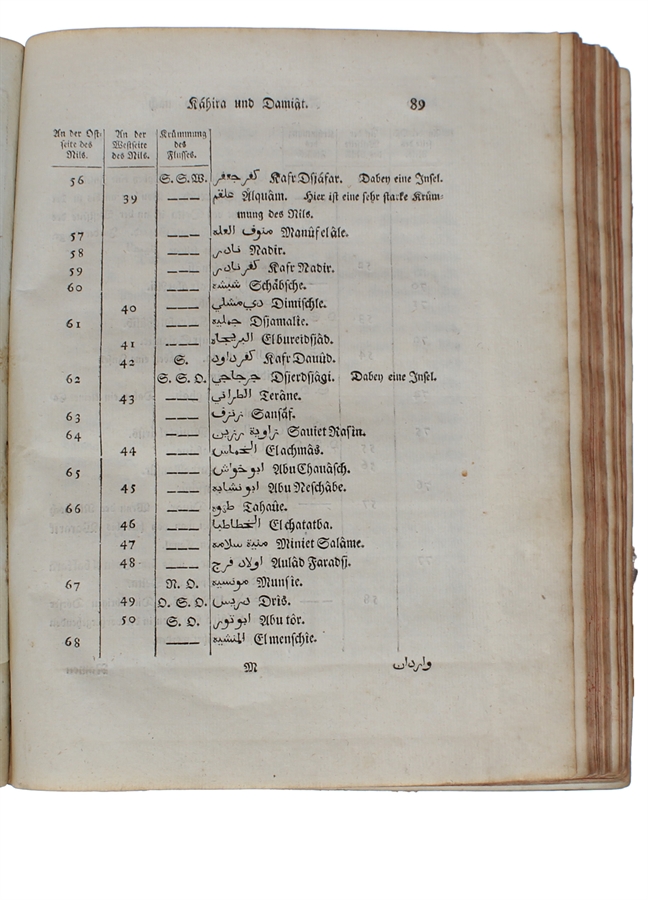 Kâhira und Damiât. 89
An der Ost- An der Krümmung
seite des Westseite des
Nils. des Nils. Flusses.
56 S. S. W. كفر جعفر Kafr Dsjâfar. Dabey eine Insel.
39 ——— علقم Alquâm. Hier ist eine sehr starke Krüm-
mung des Nils.
57 ——— منوف العله Manûf elâle.
58 ——— نادر Nadir.
59 ——— كفر نادر Kafr Nadir.
60 ——— شبشه Schâbsche.
40 ——— دي مشلي Dimischle.
61 ——— جمليه Dsjamalie.
41 ——— البريجاه Elbureidsjâd.
42 S. كفر داود Kafr Daûûd.
62 S. S. O. جرجاجي Dsjerdsjâgi. Dabey eine Insel.
43 ——— الطراني Terâne.
63 ——— زنزف Sansâf.
64 ——— زاوية رزين Sauiet Rasin.
44 ——— الخماس Elachmâs.
65 ——— ابو خواش Abu Chauâsch.
45 ——— ابو نشابه Abu Neschâbe.
66 ——— طهوه Tahaûe.
46 ——— الخطاطبا Elchatatba.
47 ——— منية سلامه Miniet Salâme.
48 ——— اولاد فرج Aulâd Faradsj.
67 N. O. مونسيه Munsie.
49 O. S. O. دريس Dris.
50 S. O. ابو تور Abu tôr.
68 ——— المنشيه Elmenschie.
M واردان